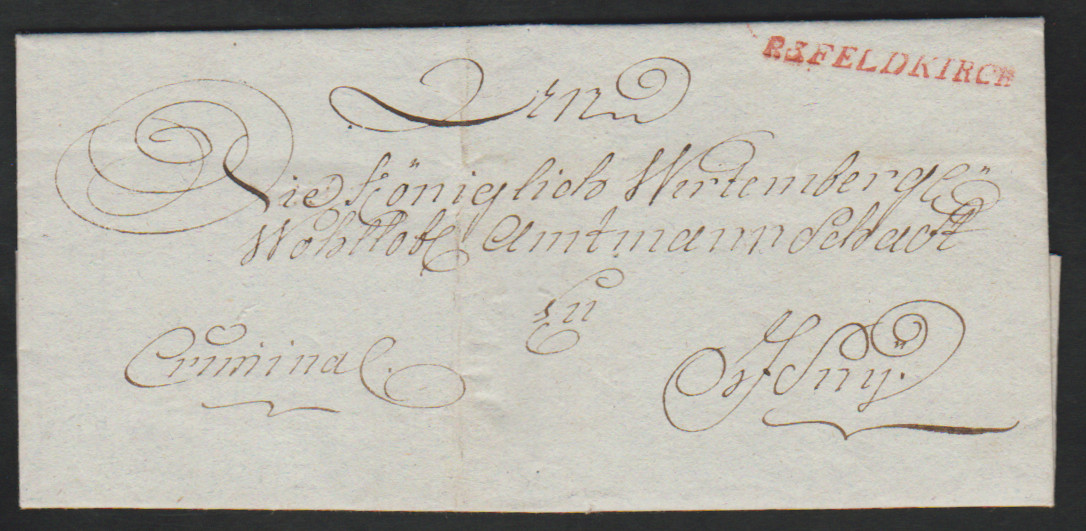 R.3.FELDKIRCH
An
Die Königlich Wirtemberge
Wohllobl Amtmannschact
zu
Criminal. Isny.